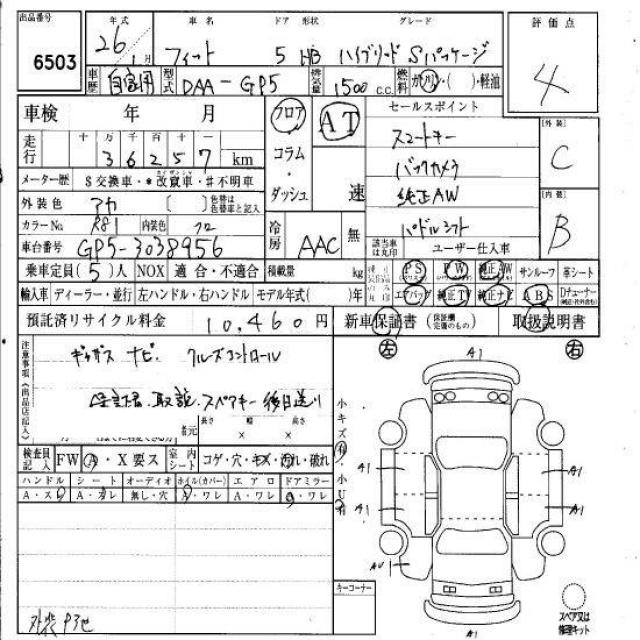 出品番号 年式 車名 ドア 形状 グレード 評価点
6503 26年1月 フィット 5 HB ハイブリッド Sパッケージ 4
車歴 自家用 型式 DAA-GP5 排気量 1500 c.c. 燃料 ガソリン・( )・軽油
車検 年 月 フロア AT セールスポイント
走行 十万千百十一 スマートキー [外装]
36257 km コラム バックカメラ C
メーター歴 $交換車・*改竄車・#不明車 純正AW
外装色 アカ [ ] 色替は色替車名と記入 ダッシュ 速 [内装]
カラーNo R81 内装色 クロ パドルシフト B
車台番号 GP5-3038956 冷房 AAC 無 該当車は丸印 ユーザー仕入車
乗車定員(5)人 NOX 適合・不適合 積載量 kg PS PW 純正AW サンルーフ 革シート
輸入車 ディーラー・並行 左ハンドル・右ハンドル モデル年式( )年 エアバッグ 純正TV 純正ナビ ABS Dチューナー
預託済リサイクル料金 10,460円 新車保証書(保証欄記載のもの) 取扱説明書
注意事項《出品店記入》 ギャザズ ナビ. クルーズコントロール
左 A1 右
保証書.取説.スペアキー後日送り
長さ 幅 高さ
× ×
小キズ有・小U有
検査員記入 FW A・X要ス 室内シート コゲ・穴・キズ・汚れ・破れ
ハンドル シート オーディオ ホイル(カバー) エアロ ドアミラー
A・スレ A・コレ 無し・穴 A・ワレ A・ワレ A・ワレ
A1 A1
A1 A1
AU1
キーコーナー
外装 P3他
スペア又は修理キット
A1